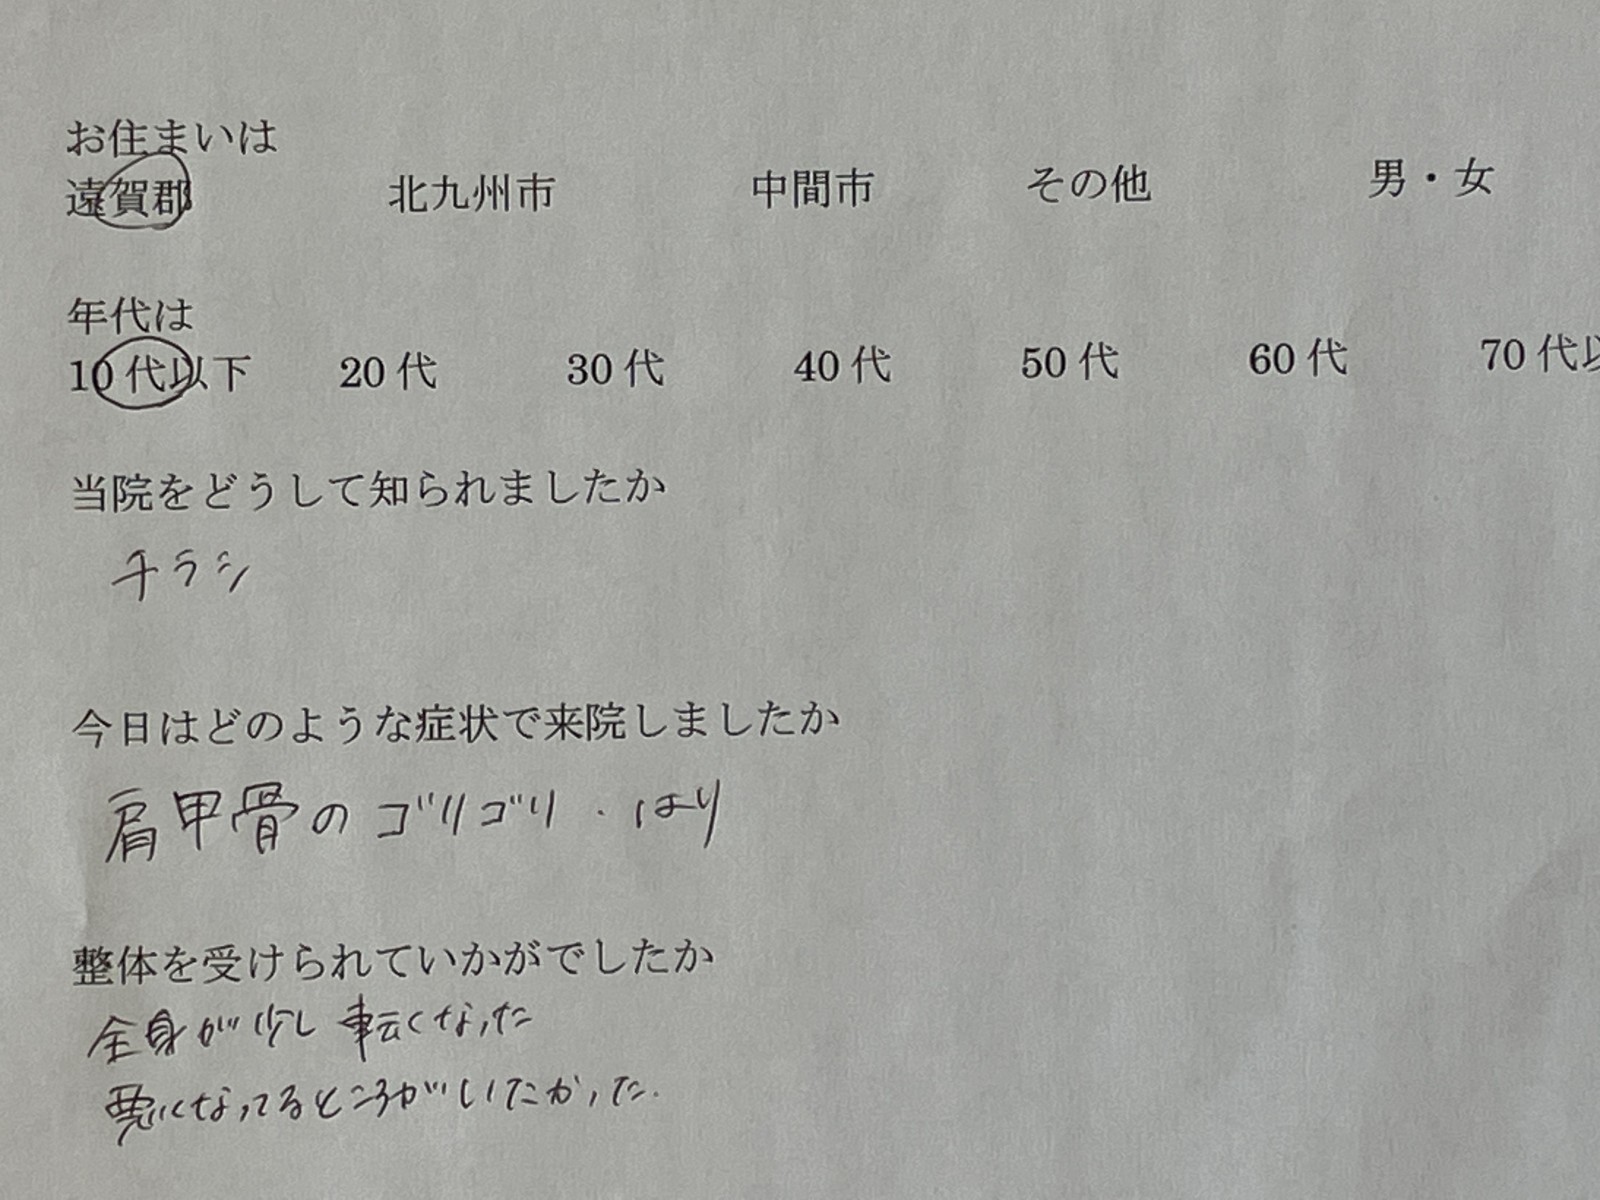 お住まいは
遠賀郡 北九州市 中間市 その他 男・女
年代は
10代以下 20代 30代 40代 50代 60代 70代以
当院をどうして知られましたか
チラシ
今日はどのような症状で来院しましたか
肩甲骨の ゴリゴリ・はり
整体を受けられていかがでしたか
全身が少し 転くなった
悪くなってるところがいたかった.